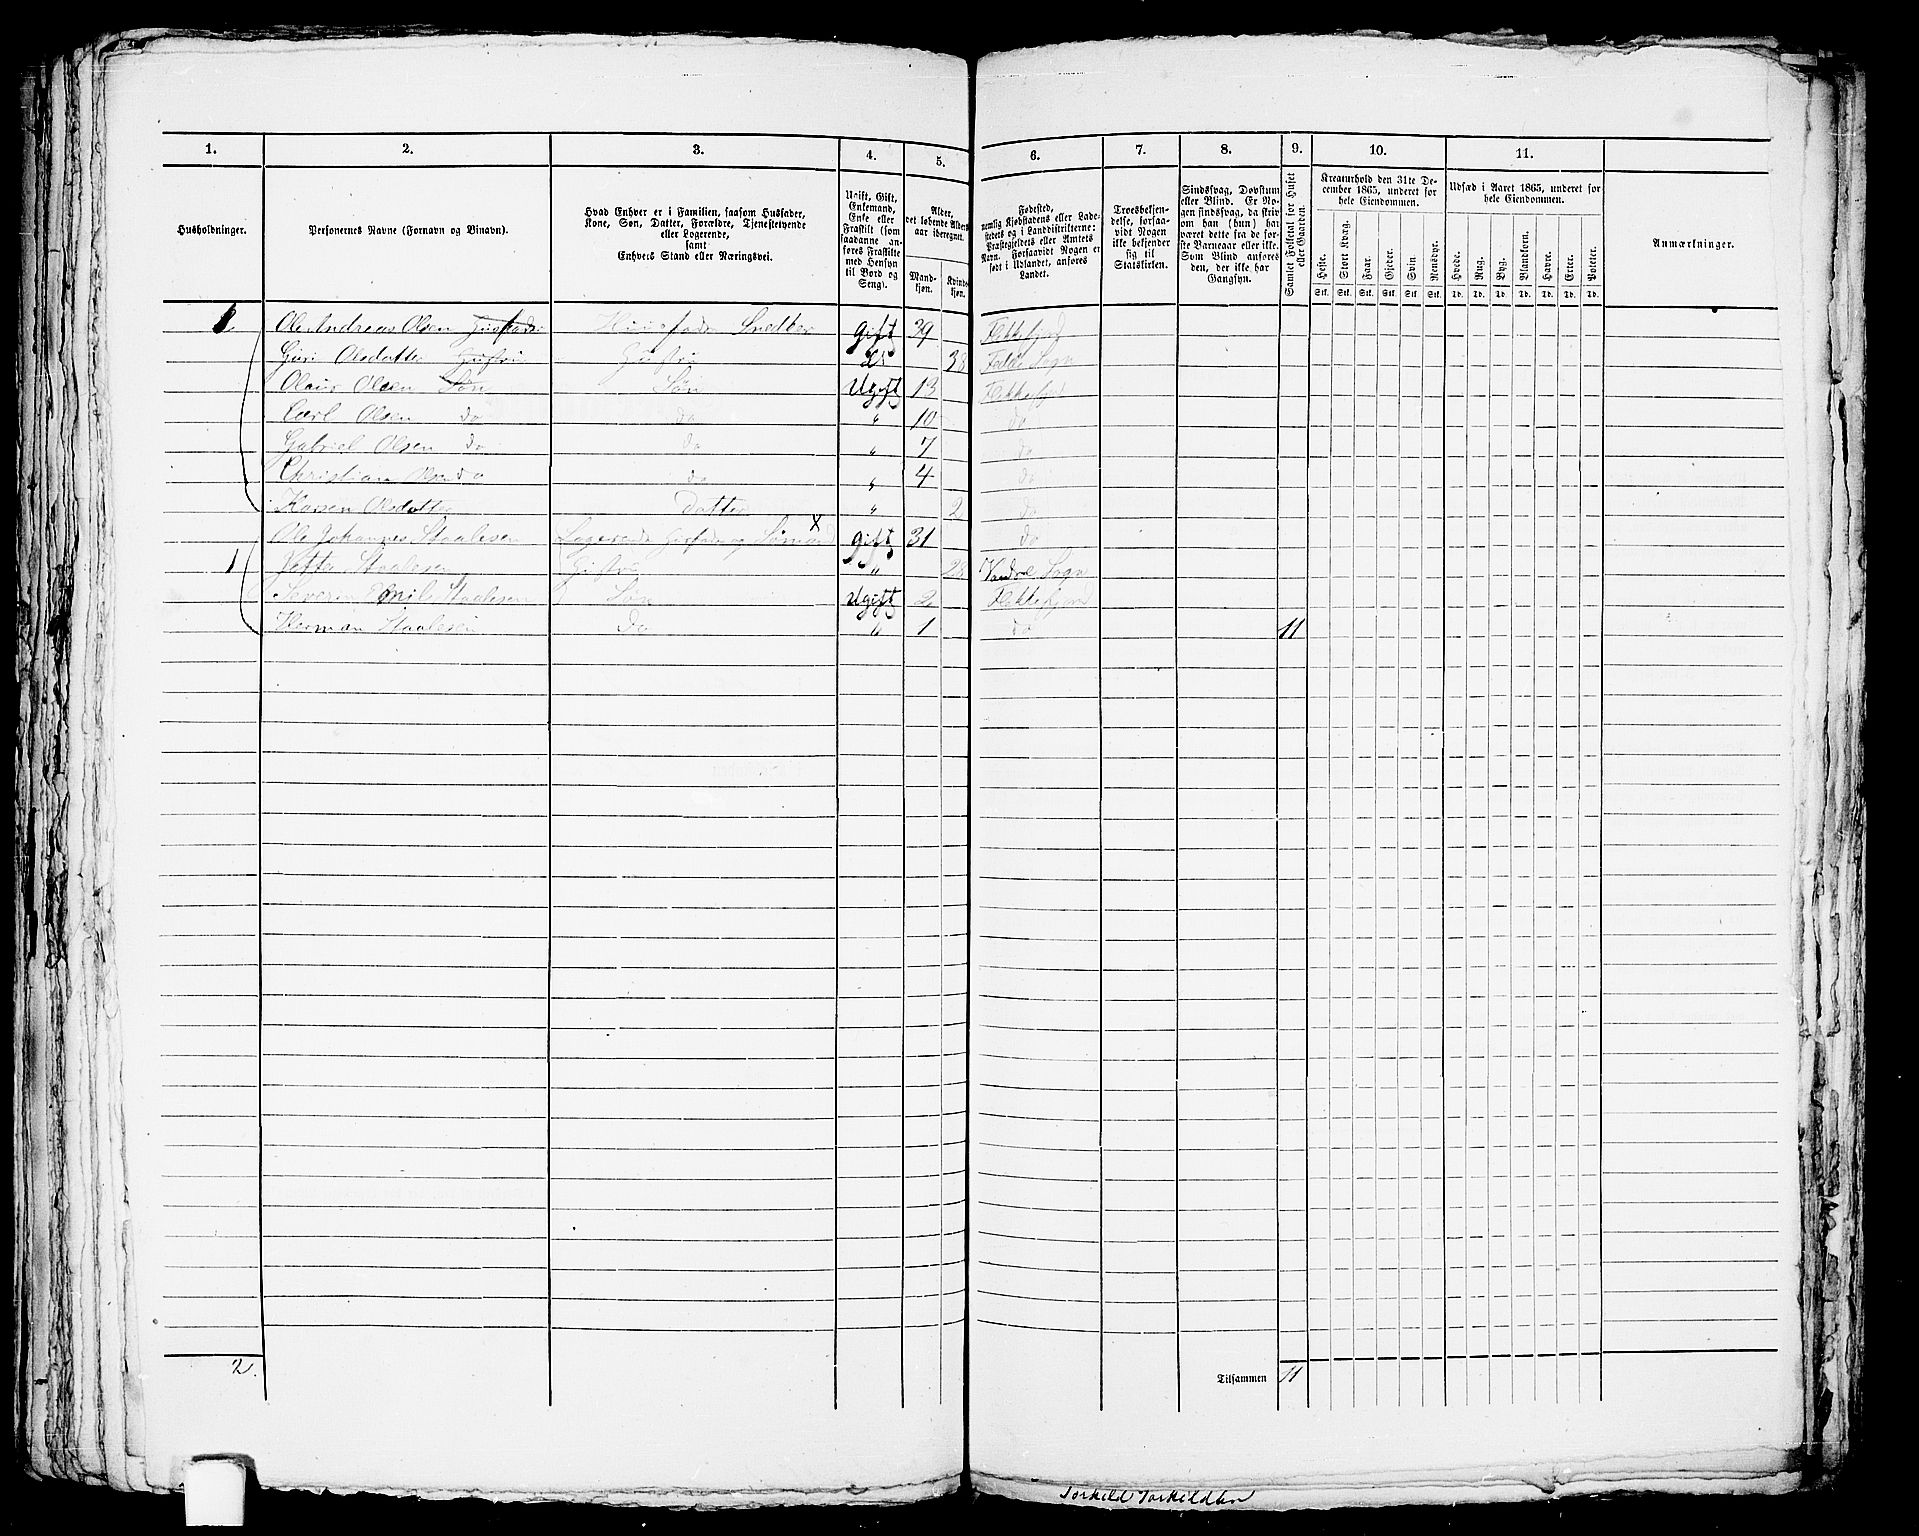 1. 2. 3. 4. 5. 6. 7. 8. 9. 10. 11.
Husholdninger.
Personernes Navne (Fornavn og Binavn).
Hvad Enhver er i Familien, saasom Husfader,
Kone, Søn, Datter, Forældre, Tjenestetyende
eller Logerende,
samt
Enhvers Stand eller Næringsvei.
Ugift, Gift,
Enkemand,
Enke eller
Fraskilt (som
saadanne an-
føres Fraskilte
med Hensyn
til Bord og
Seng).
Alder,
det løbende Alders-
aar iberegnet.
Mand-
kjøn.
Kvinde-
kjøn.
Fødested,
nemlig Kjøbstadens eller Lade-
stedets og i Landdistrikterne:
Præstegjeldets eller Amtets
Navn. Forsaavidt Nogen er
født i Udlandet, anføres
Landet.
Troesbekjen-
delse, forsaa-
vidt Nogen
ikke bekjender
sig til
Statskirken.
Sindssvag, Døvstum
eller Blind. Er No-
gen sindssvag, da skriv
om han (hun) har
været dette fra de før-
ste Barneaar eller ikke.
Som Blind anføres
den, der ikke har
Gangsyn.
Samlet Folketal for Huset
eller Gaarden.
Kreaturhold den 31te De-
cember 1865, underet for
hele Eiendommen.
Heste. Stort Kvæg. Faar. Gjeder. Svin. Rensdyr.
Stk. Stk. Stk. Stk. Stk. Stk.
Udsæd i Aaret 1865, underet for
hele Eiendommen.
Hvede. Rug. Byg. Blandkorn. Havre. Erter. Poteter.
Td. Td. Td. Td. Td. Td. Td.
Anmærkninger.
1 Ole Andreas Olsen Husfader Huusfader Snedker Gift 39 Flekkefjord
Guri Olsdatter Hustru Hustru Do 38 Fedde Sogn
Olaus Olsen Søn Søn Ugift 13 Flekkefjord
Carl Olsen do do " 10 do
Gabriel Olsen do do " 7 do
Christian Olsen do do " 4 do
Karen Olsdatter Datter " 2 do
1 Ole Johannes Staalesen Logerende Husfader og Sømand X Gift 31 do
Staalesen Hustru " 28 Sogn
Severin Emil Staalesen Søn Ugift 2 Flekkefjord
Herman Staalesen Do " 1 do 11
2. Tilsammen 11
Torkild Torkildsen